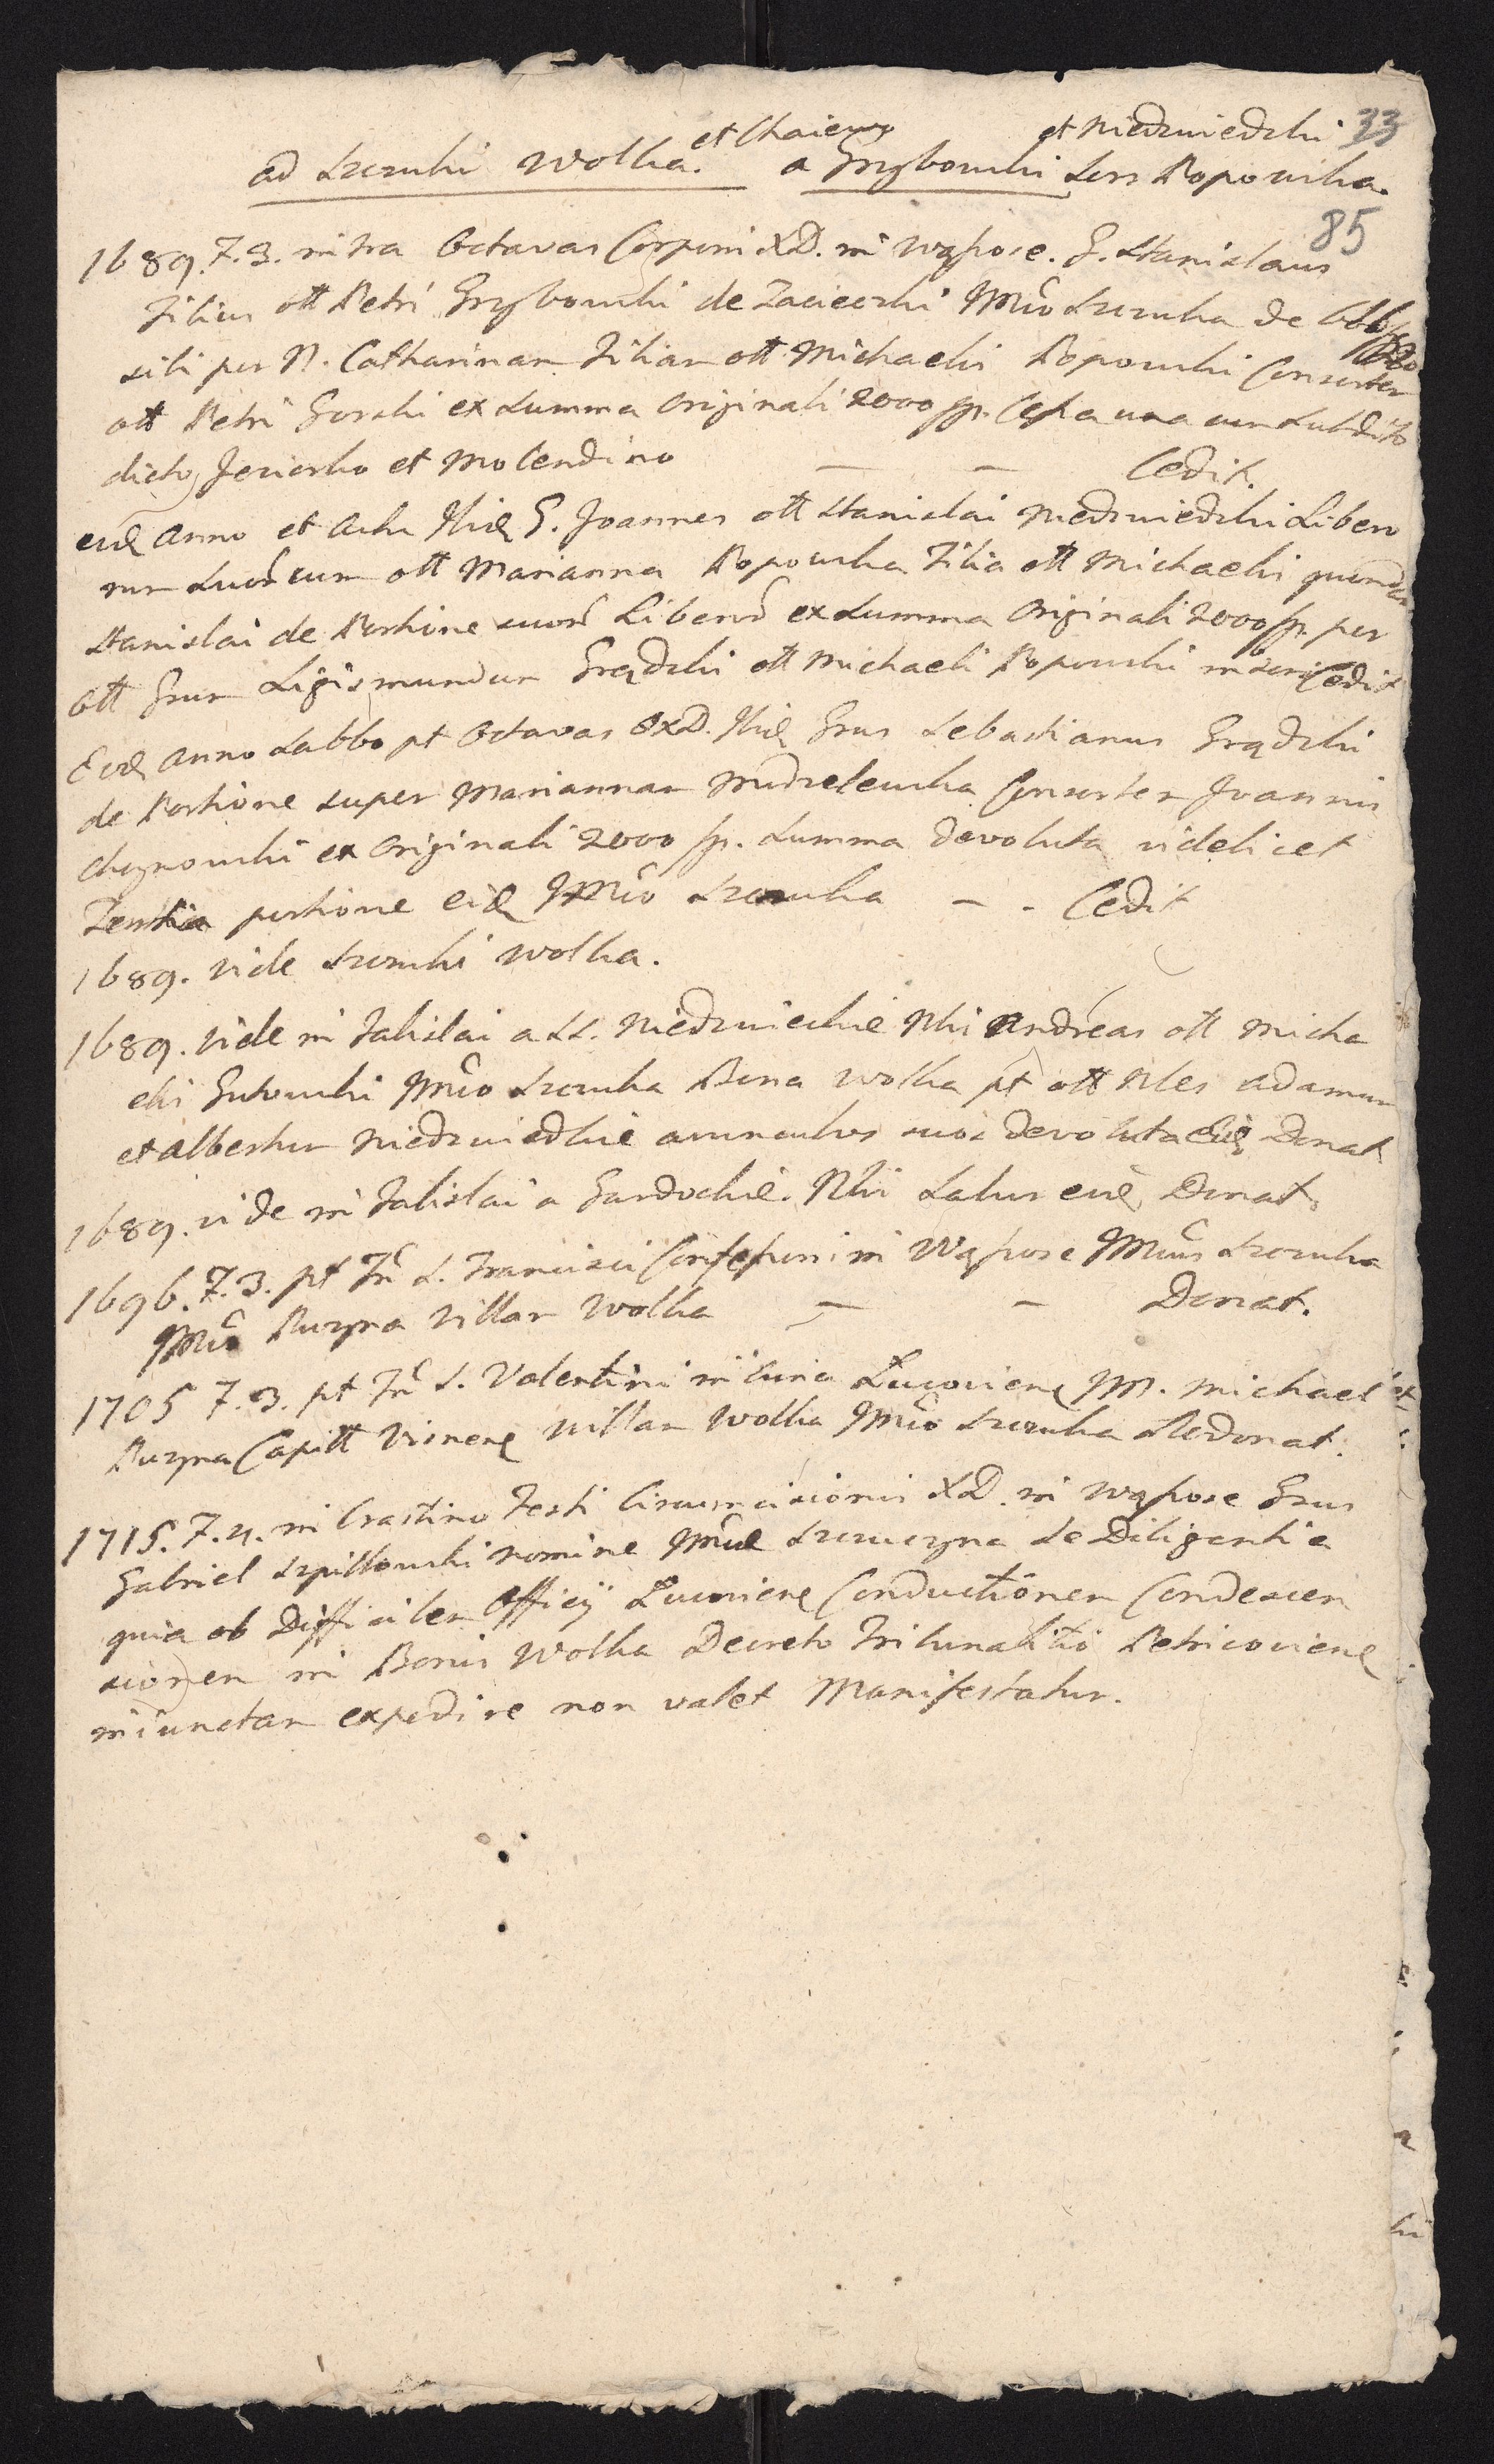 et Chaiewo et Niedzwiedzki 33
ad Szczuki Wolka. a Grzybowski Sors Popowska.
85
1689. F. 3. intra Octavas Corporis XD. in Wąsosze. G. Stanislaus
Filius olt Petri Grzybowski de Zacieczki Mco Szczuka de
sibi per N. Catharinam Filiam olt Michaelis Popowski Consortem
olt Petri Gorski ex Summa Originali 2000 fp. Cessa una cum Subdito
dicto Jeziorko et Molendino — — Cedit.
eod Anno et Actu Ibid G. Joannes olt Stanislai Niedzwiedzki Libero
rum Suor cum olt Marianna Popowska Filia olt Michaelis quondam
Stanislai de Portione suor Liberor ex Summa Originali 2000 fp. per
olt Grum Sigismundum Grądzki olt Michaeli Popowski Cedit
Eod Anno Sabbo pt Octavas XD. Ibid Grus Sebastianus Grądzki
de Portione super Mariannam Consortem Joannis
Choynowski ex Originali 2000 fp. Summa devoluta videlicet
Tertia portione eid Mco Szczuka — - Cedit
1689. vide Szczuki Wolka.
1689. vide in Falislai a SS. Niedzwieckie Nlis Andreas olt Micha
elis Gutowski Mco Szczuka Bona Wolka pt olt Nles Adamum
et Albertum Niedzwiedkie avunculos suos devoluta Eid Donat
1689. vide in Falislai a Gardockie. Nlis Salus eid Donat.
1696. F. 3. pt Fm S. Francisci Confessoris in Wąsosze Mcus Szczuka
Mco Ruzyna Villam Wolka — — Donat.
1705 F. 3. pt Fm S. Valentini in Curia Zucoviens M. Michael
Ruzyna Capitt Visnens Villam Wolka Mco Szczuka Redonat.
1715. F. 4. in Crastino Festi Circumcisionis XD. in Wąsosze Grus
Gabriel Szpillowski nomine Mcae Szczuczyna de Diligentia
quia ob Difficilem Officij Zucoviens Conductionem Condescen
sionem in Bonis Wolka Decreto Tribunalitio Petricoviens
iniunctam expedire non valet Manifestatur.